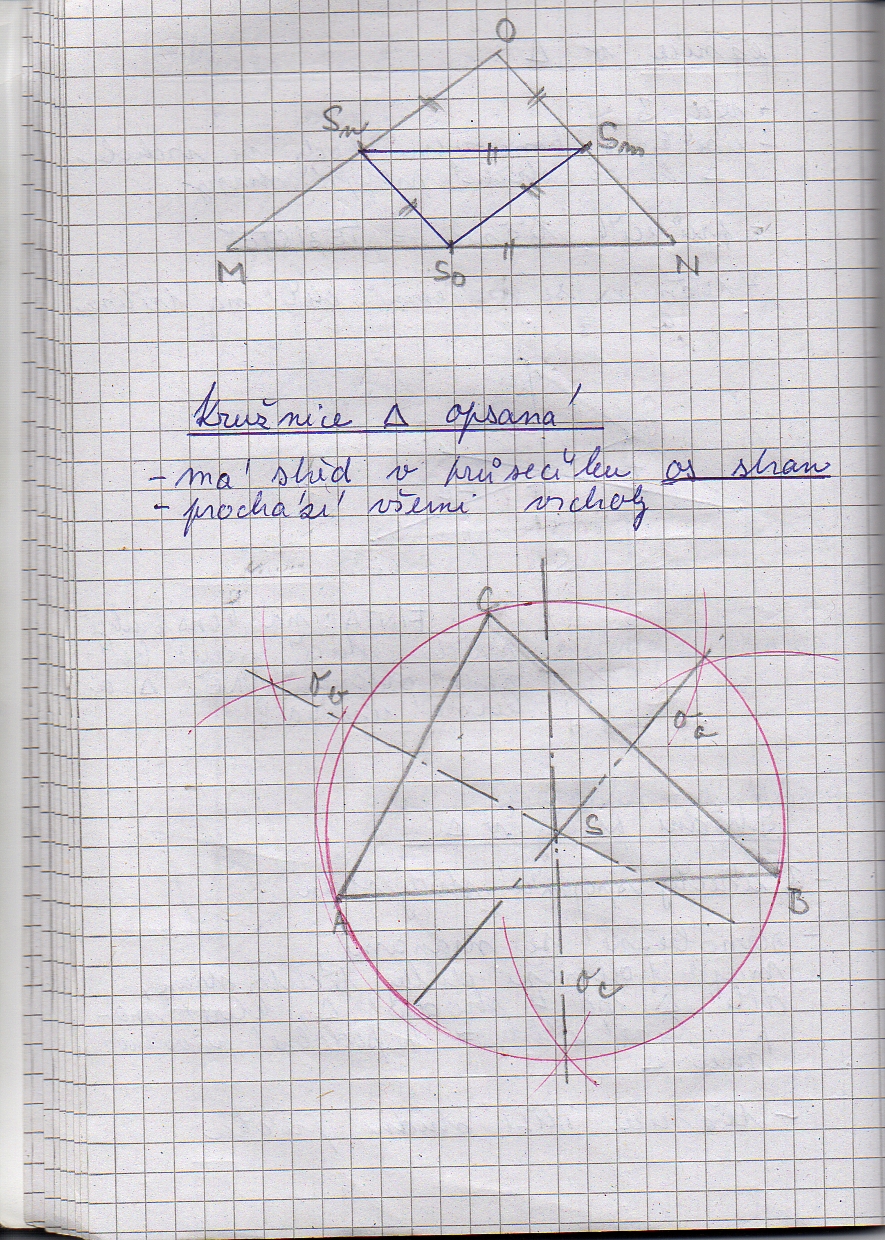 O
Sn
Sm
M
So
N
Kružnice Δ opsaná
- má střed v průsečíku os stran
- prochází všemi vrcholy
C
σb
σa
S
A
B
σc